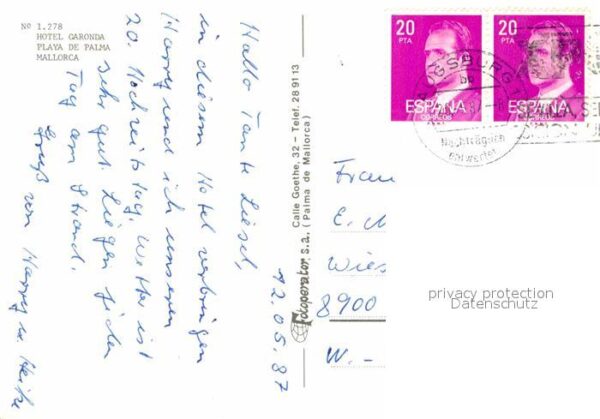 Nº 1.278
HOTEL GARONDA
PLAYA DE PALMA
MALLORCA
Hallo Tante Liesel,
in diesem Hotel verbringen
Harry und ich unseren
20. Hochzeitstag. Wetter ist
sehr gut. Liegen jeden
Tag am Strand.
Gruß von Harry u.
12.05.87
Fotoperator, s.a.
Calle Goethe, 32 - Telef. 289113
(Palma de Mallorca)
20
PTA
ESPAÑA
CORREOS
20
PTA
ESPAÑA
CORREOS
AUGSBURG 1
bp
Nachträglich
entwertet
Frau
E.
Wies
8900
W. -
privacy protection
Datenschutz